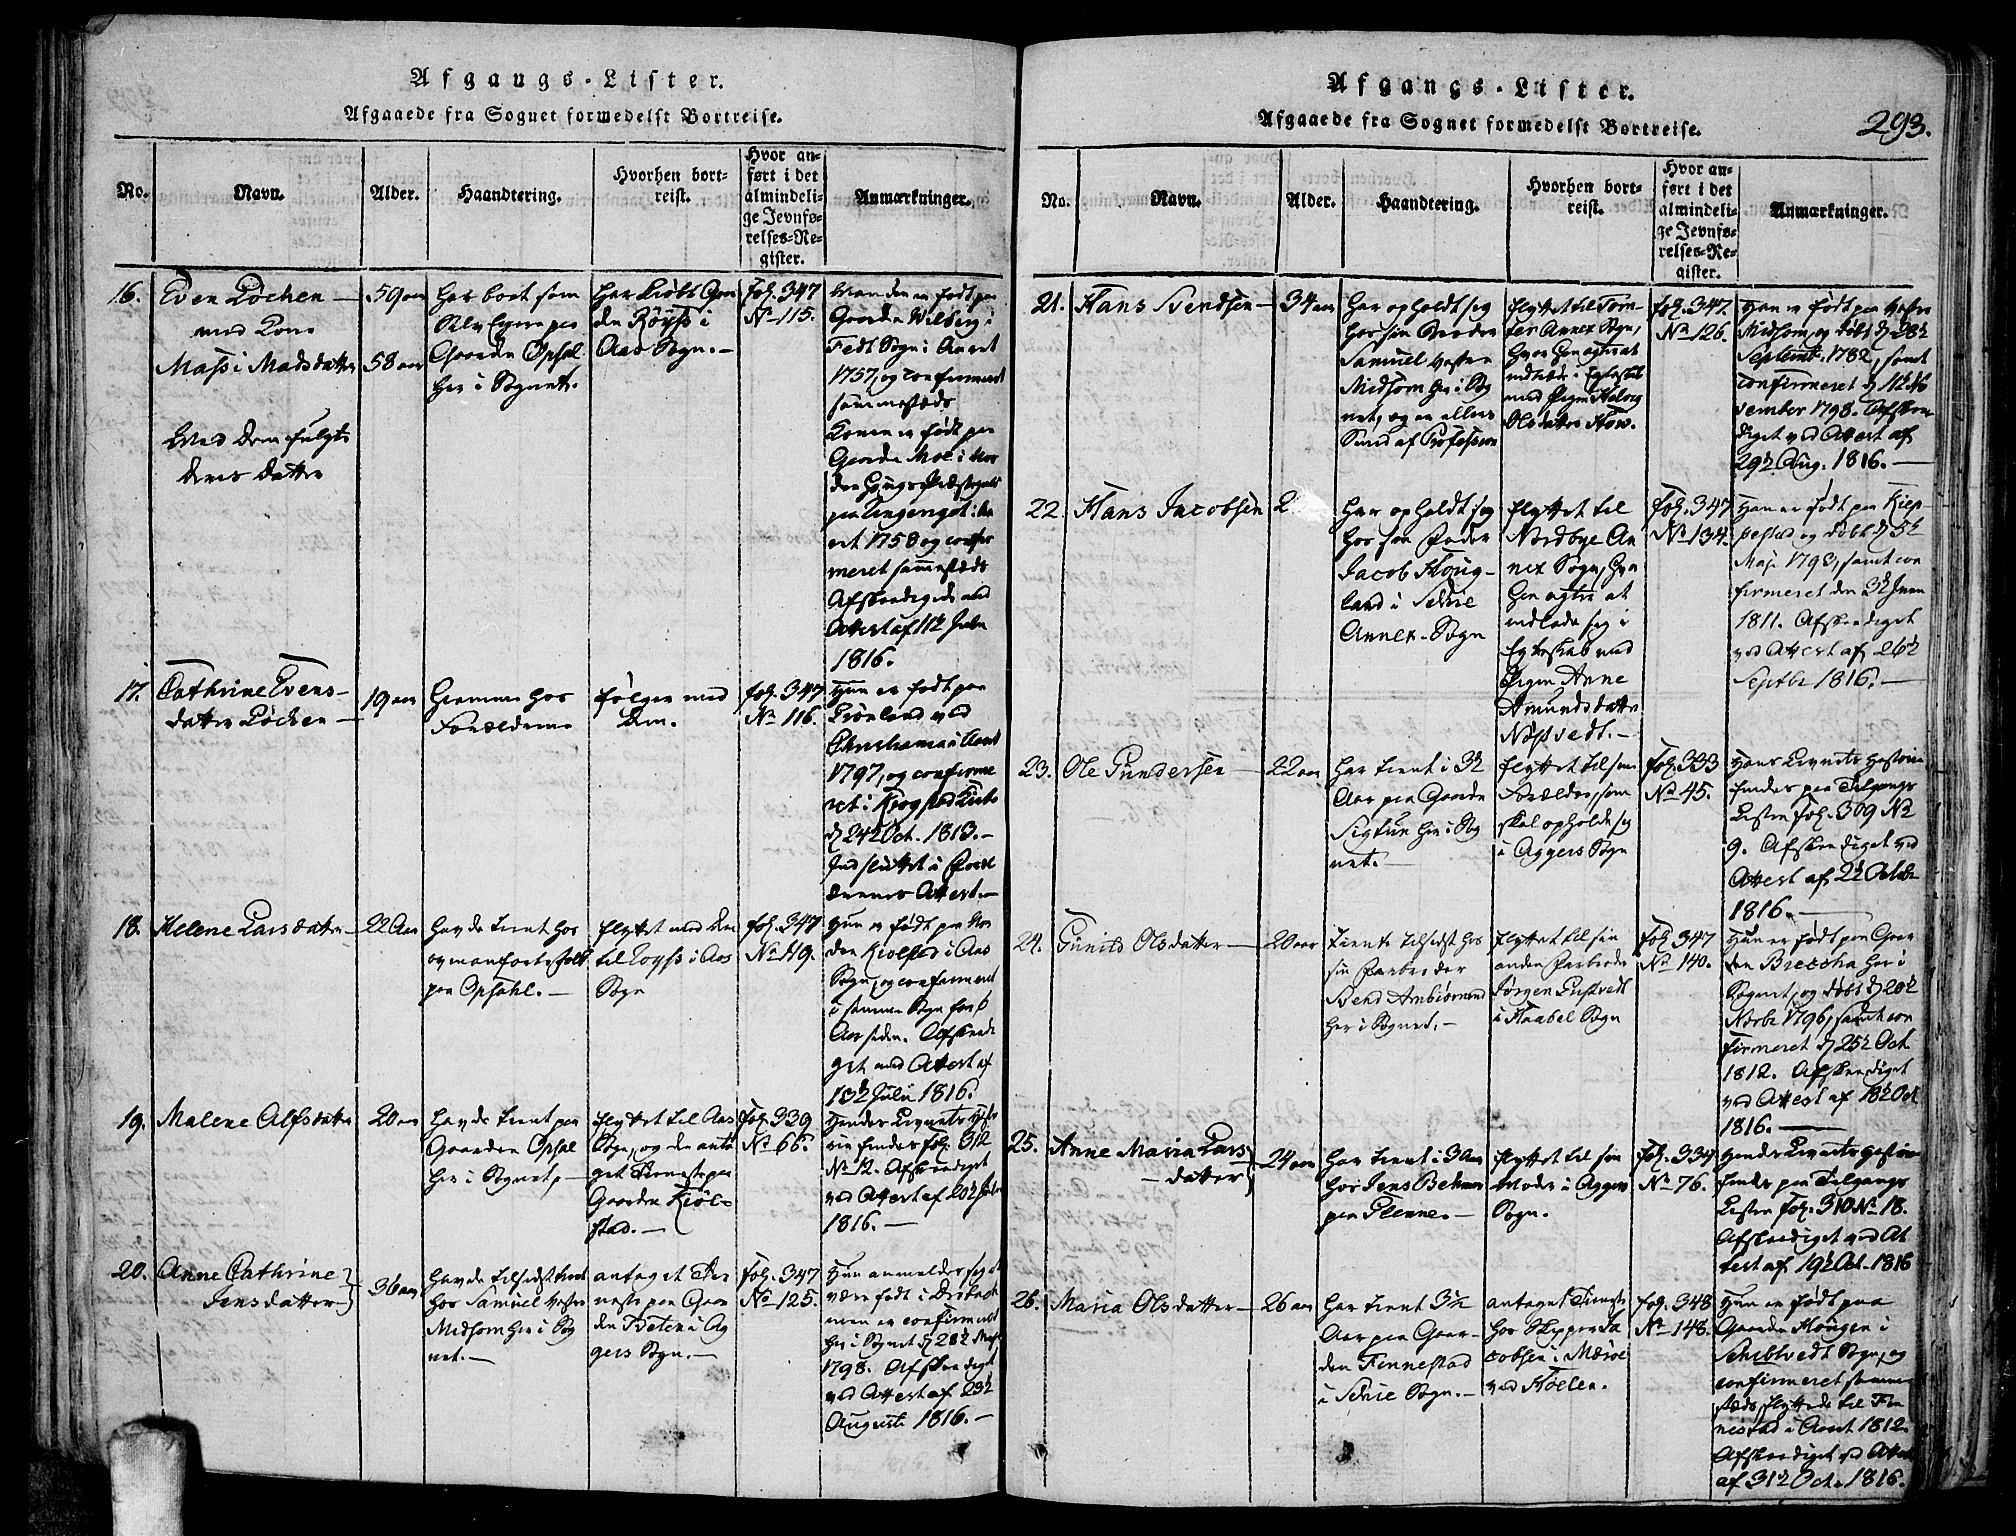 Afgangs-Lister.
Afgaaede fra Sognet formedelst Bortreise.
No.
Navn.
Alder.
Haandtering.
Hvorhen bort-
reist.
Hvor an-
ført i det
almindeli-
ge Jevnfø-
relses-Re-
gister.
Anmærkninger.
16.
Even Løchen
med Kone
Massi Madsdatter
Med dem fulgte
deres Datter
59 aar
58 aar
Har boet som
Selv Eyere paa
Gaarden Opsal
her i Sognet.
Har kiøbt Gaar
den Røyss i
Aas Sogn.
Fol. 347
No 115.
Manden er født paa
Gaarden Wilberg i
Fedt Sogn i Aaret
1757, og confirmeret
sammestæds
Konen er født paa
Gaarden Moe i
1758 og confir
meret sammestæds
Afskeedigede med
Attest af 11te Julii
1816.
17.
Cathrine Evens-
datter Løchen
19 aar
Hiemme hos
Forældrene
følger med
dem.
Fol. 347
No 116.
Hun er født paa
Grønland ved
Christiania i Aaret
1797, og confirme
ret i Krogstad Kirke
d 24de Oct. 1813.
Indsluttet i Foræl
drenes Attest.
18.
Helene Larsdatter
22 Aar
Havde tient hos
ovenanførte Folk
paa Opsahl.
flyttet med dem
til Royss i Aas
Sogn
Fol. 347
No 119.
Hun er født paa
den Kiølstad i Aas
Sogn, og confirmeret
i samme Sogn for 6
Aar siden. Afskeedi
get med Attest af
13de Julii 1816.
19.
Malene Alfsdatter
20 aar
Havde tient paa
Gaarden Opsal
her i Sognet
flyttet til Aas
Sogn, og der anta
get Tieneste paa
Gaarden Kiøl-
stad.
Fol. 339
No 66.
Hendes Livnets Histo
rie findes Fol. 312
No 12. Afskeediget
ved Attest af 20de Julii
1816.
20.
Anne Cathrine
Jensdatter
36 aar
Havde tilsidst tient
hos Samuel Vestre
Midsom her i Sog
net.
antaget Tie
neste paa Gaar
den Tveten i Ag
gers Sogn.
Fol. 347
No 125.
Hun anmelder sig at
være født i Drøbak
men er confirmeret
her i Sognet d 28de
1798. Afskeediget
ved Attest af 23de
Augusti 1816.
Afgangs-Lister.
Afgaaede fra Sognet formedelst Bortreise.
293.
No.
Navn.
Alder.
Haandtering.
Hvorhen bort-
reist.
Hvor an-
ført i det
almindeli-
ge Jevnfø-
relses-Re-
gister.
Anmærkninger.
21.
Hans Svendsen
34 aar
Har opholdt sig
hos sin Broder
Samuel Vestre
Midsom her i Sog
net, og er ellers
Smed af Profession
flyttet til
Annex Sogn,
hvor han agter at
indtræde i Egteskab
med Pigen
Olsdatter
Fol. 347.
No 126.
Han er født paa Vestre
Midsom, og døbt d 28de
Septembr. 1782, samt
confirmeret d 11te No
vember 1798. Afskee
diget ved Attest af
29de Aug. 1816.
22.
Hans Jacobsen
2
Har opholdt sig
hos sin Fader
Jacob Houg-
land i
Annex-Sogn
flyttet til
Nordbye An
nex Sogn, hvor
han agter at
indlade sig i
Egteskab med
Pigen Anne
Amundsdatter
Fol. 347
No 134.
Han er født paa Kiep
pestad og døbt d 5te
Maji 1793, samt con
firmeret den 3de Juni
1811. Afskeediget
ved Attest af 26de
Septbr 1816.
23.
Ole Gundersen
22 aar
Har tient i 3½
Aar paa Gaarden
Sigtun her i Sog
net.
flyttet til sine
Forældre, som
skal opholde sig
i Aggers Sogn
Fol. 333
No 45.
Hans Livnets Historie
findes paa Tilgangs
Listen Fol. 309 No
9. Afskeediget ved
Attest af 2de October
1816.
24.
Gunild Olsdatter
20 aar
Tiente tilsidst hos
sin Farbroder
Ambiørnrud
her i Sognet.
flyttet til sin
anden Farbroder
Jørgen Gustvedt
i Haabel Sogn
Fol 347
No 140.
Hun er født paa Gaar
den Bretsha her i
Sognet, og døbt d 20de
Novbr 1796, samt con
firmeret d 25de Oct.
1812. Afskeediget
ved Attest af 18de Oct
1816.
25.
Anne Maria Lars
datter
24 aar
Har tient i 3 Aar
hos Jens
paa Glenne.
flyttet til sin
Moder i Aggers
Sogn.
Fol. 334
No 76.
Hendes Livnets Historie
findes paa Tilgangs
Listen Fol. 310 No 18.
Afskeediget ved At
test af 19de Oct. 1816
26.
Maria Olsdatter
26 aar
Har tient 3½
Aar paa Gaar-
den Finnestad
i Sogn.
antaget Tieneste
hos Skipper Ja
cobsen i
ved Høelen.
Fol. 348
No 148.
Hun er født paa
Gaarden Hougen i
Schibtvedt Sogn, og
confirmeret samme
stæds, flyttede til Fin
nestad i Aaret 1812.
Afskeediget ved Attest
af 31te Oct. 1816.